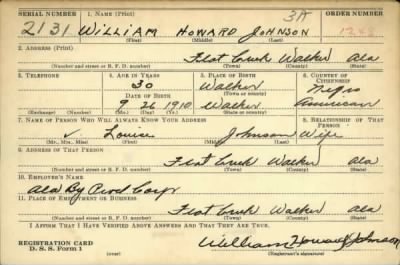 SERIAL NUMBER 1. NAME (Print) 3A ORDER NUMBER
2131 WILLIAM HOWARD JOHNSON
(First) (Middle) (Last)
2. ADDRESS (Print)
Flat Creek Walker Ala
(Number and street or R. F. D. number) (Town) (County) (State)
3. TELEPHONE 4. AGE IN YEARS 5. PLACE OF BIRTH 6. COUNTRY OF CITIZENSHIP
30 Walker Negro
DATE OF BIRTH (Town or county)
9 26 1910 Walker American
(Exchange) (Number) (Mo.) (Day) (Yr.) (State or country)
7. NAME OF PERSON WHO WILL ALWAYS KNOW YOUR ADDRESS 8. RELATIONSHIP OF THAT PERSON
Louise Johnson Wife
(Mr., Mrs., Miss) (First) (Middle) (Last)
9. ADDRESS OF THAT PERSON
Flat Creek Walker Ala
(Number and street or R. F. D. number) (Town) (County) (State)
10. EMPLOYER'S NAME
Ala By Prod Corp
11. PLACE OF EMPLOYMENT OR BUSINESS
Flat Creek Walker Ala
(Number and street or R. F. D. number) (Town) (County) (State)
I AFFIRM THAT I HAVE VERIFIED ABOVE ANSWERS AND THAT THEY ARE TRUE.
REGISTRATION CARD
D. S. S. Form 1 William Howard Johnson
(over) (Registrant's signature)